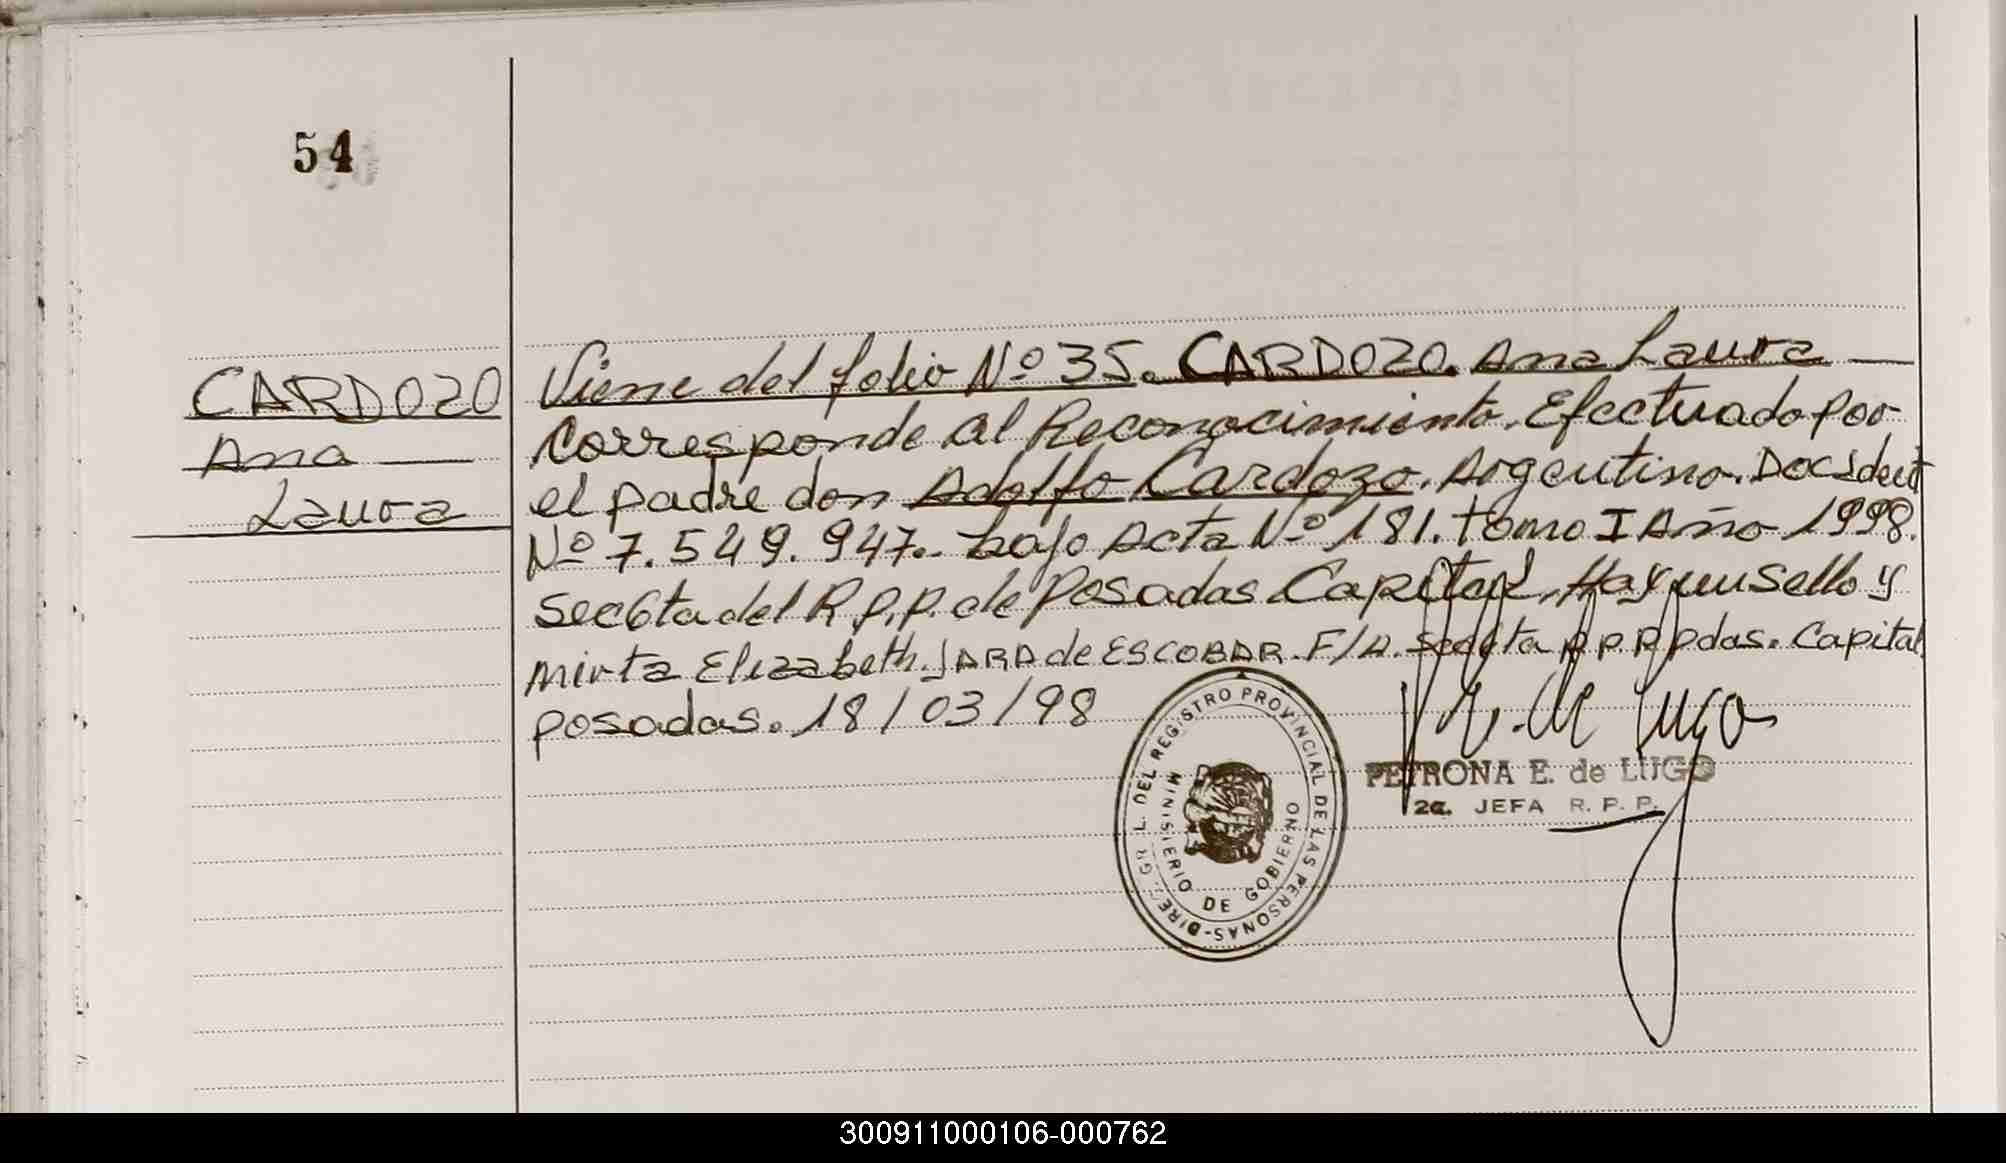 54
CARDOZO
Ana
Laura
Viene del folio Nº 35. CARDOZO. Ana Laura
Corresponde al Reconocimiento. Efectuado por
el padre don Adolfo Cardozo. Argentino. Doc Ident
Nº 7.549.947. bajo Acta Nº 181. tomo I Año 1998.
Secc 6ta del R.P.P. de Posadas Capital. Hay un Sello y
Mirta Elizabeth. JARA de ESCOBAR. F/A. Secc 6ta R.P.P. Pdas. Capital
posadas. 18/03/98
P. E. de Lugo
PETRONA E. de LUGO
2a. JEFA R. P. P.
DIREC. GRL. DEL REGISTRO PROVINCIAL DE LAS PERSONAS-
MINISTERIO DE GOBIERNO
300911000106-000762